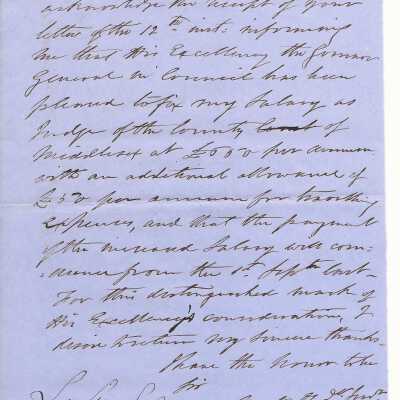 acknowledge the receipt of your
letter of the 12th inst: informing
me that His Excellency the Governor
General in Council has been
pleased to fix my Salary as
Judge of the County Court of
Middlesex at £500 per annum
with an additional allowance of
£50 per annum for travelling
Expences, and that the payment
of the increased Salary will com:
:mence from the 1st Septr last-
For this distinguished mark of
His Excellency's consideration, I
desire to return my sincere thanks-
I have the honor to be
Sir